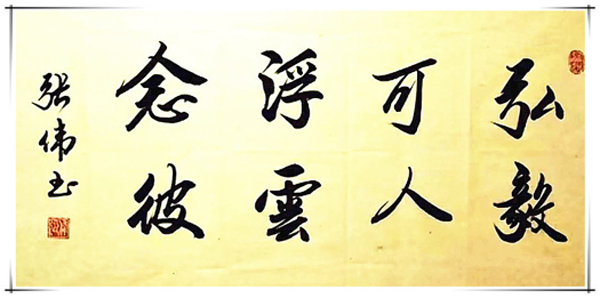 弘毅
可人
浮雲
念彼
张伟书